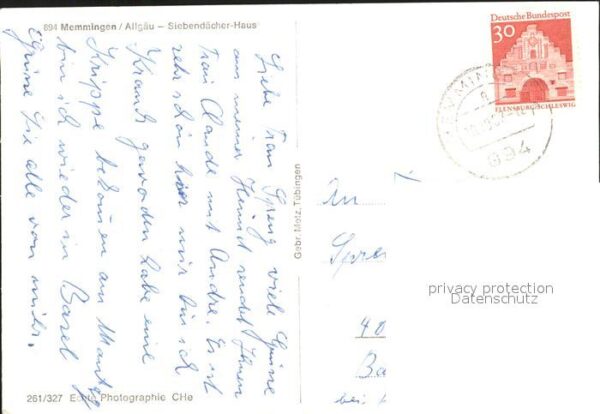 894 Memmingen / Allgäu – Siebendächer-Haus
Liebe Frau Spreng viele Grüsse
aus meiner Heimat sendet Ihnen
Frau Claude mit Andre. Es ist
sehr schön hier nur bin ich
Krank geworden habe eine
Grippe bekommen am Montag
bin ich wieder in Basel
Grüsse Sie alle von mir.
Gebr. Metz, Tübingen
261/327 Echte Photographie CHe
Deutsche Bundespost
30
FLENSBURG/SCHLESWIG
894
An
Spre
40
Ba
bei
privacy protection
Datenschutz